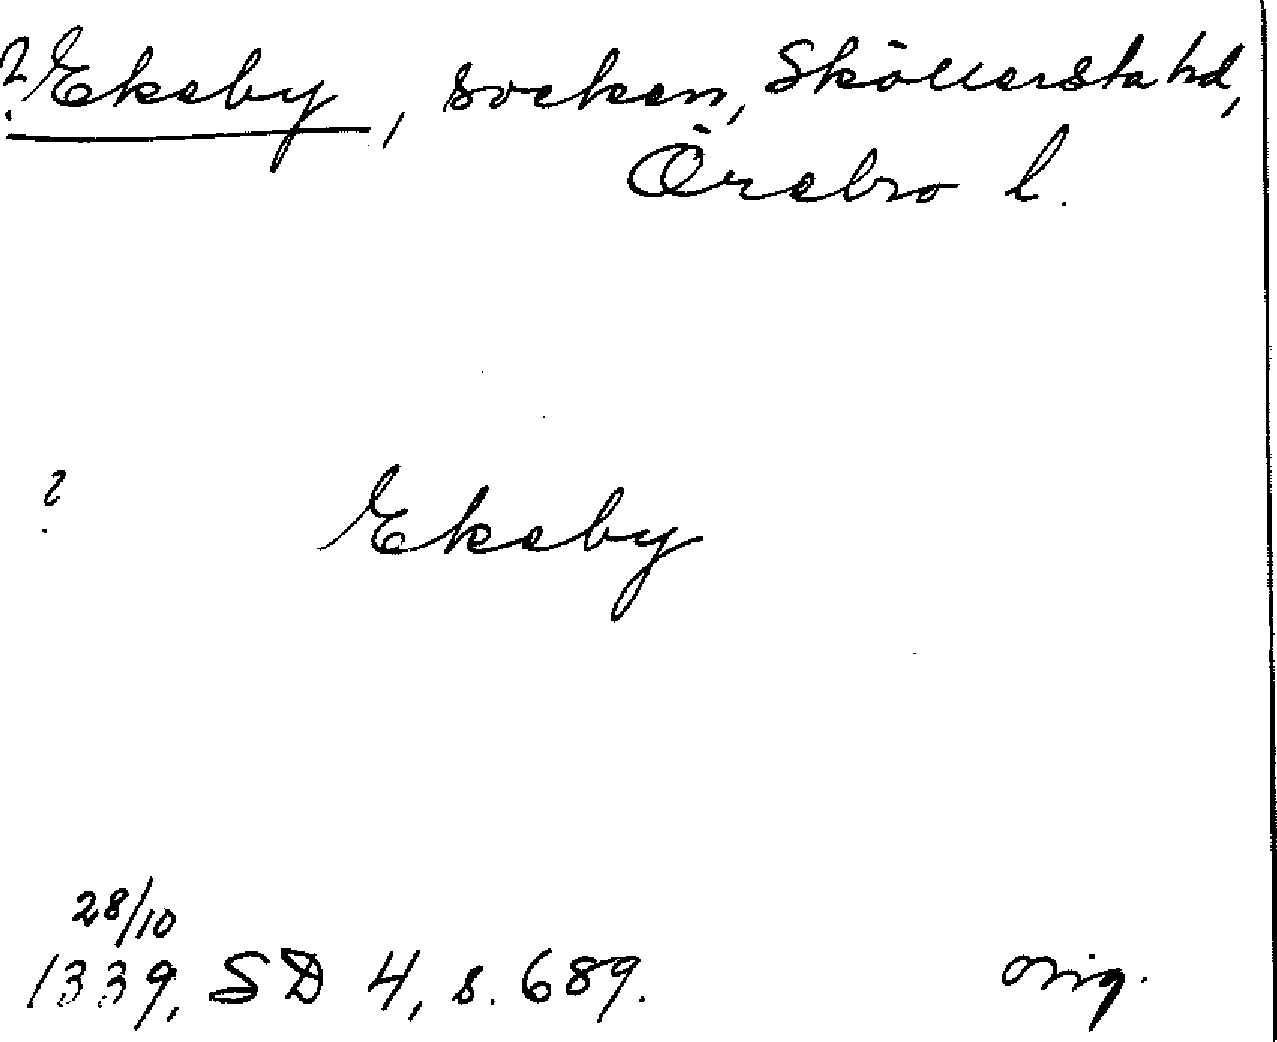 ? Ekeby, socken, Sköllersta hd,
Örebro l.
? Ekeby
28/10
1339, SD 4, s. 689. orig.